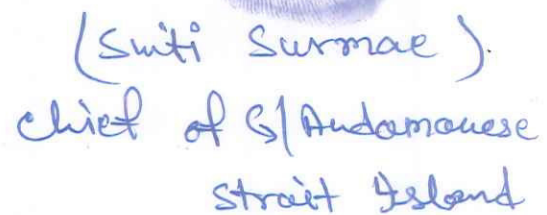 (Smti Surmae).
Chief of G/Andamanese
Strait Island